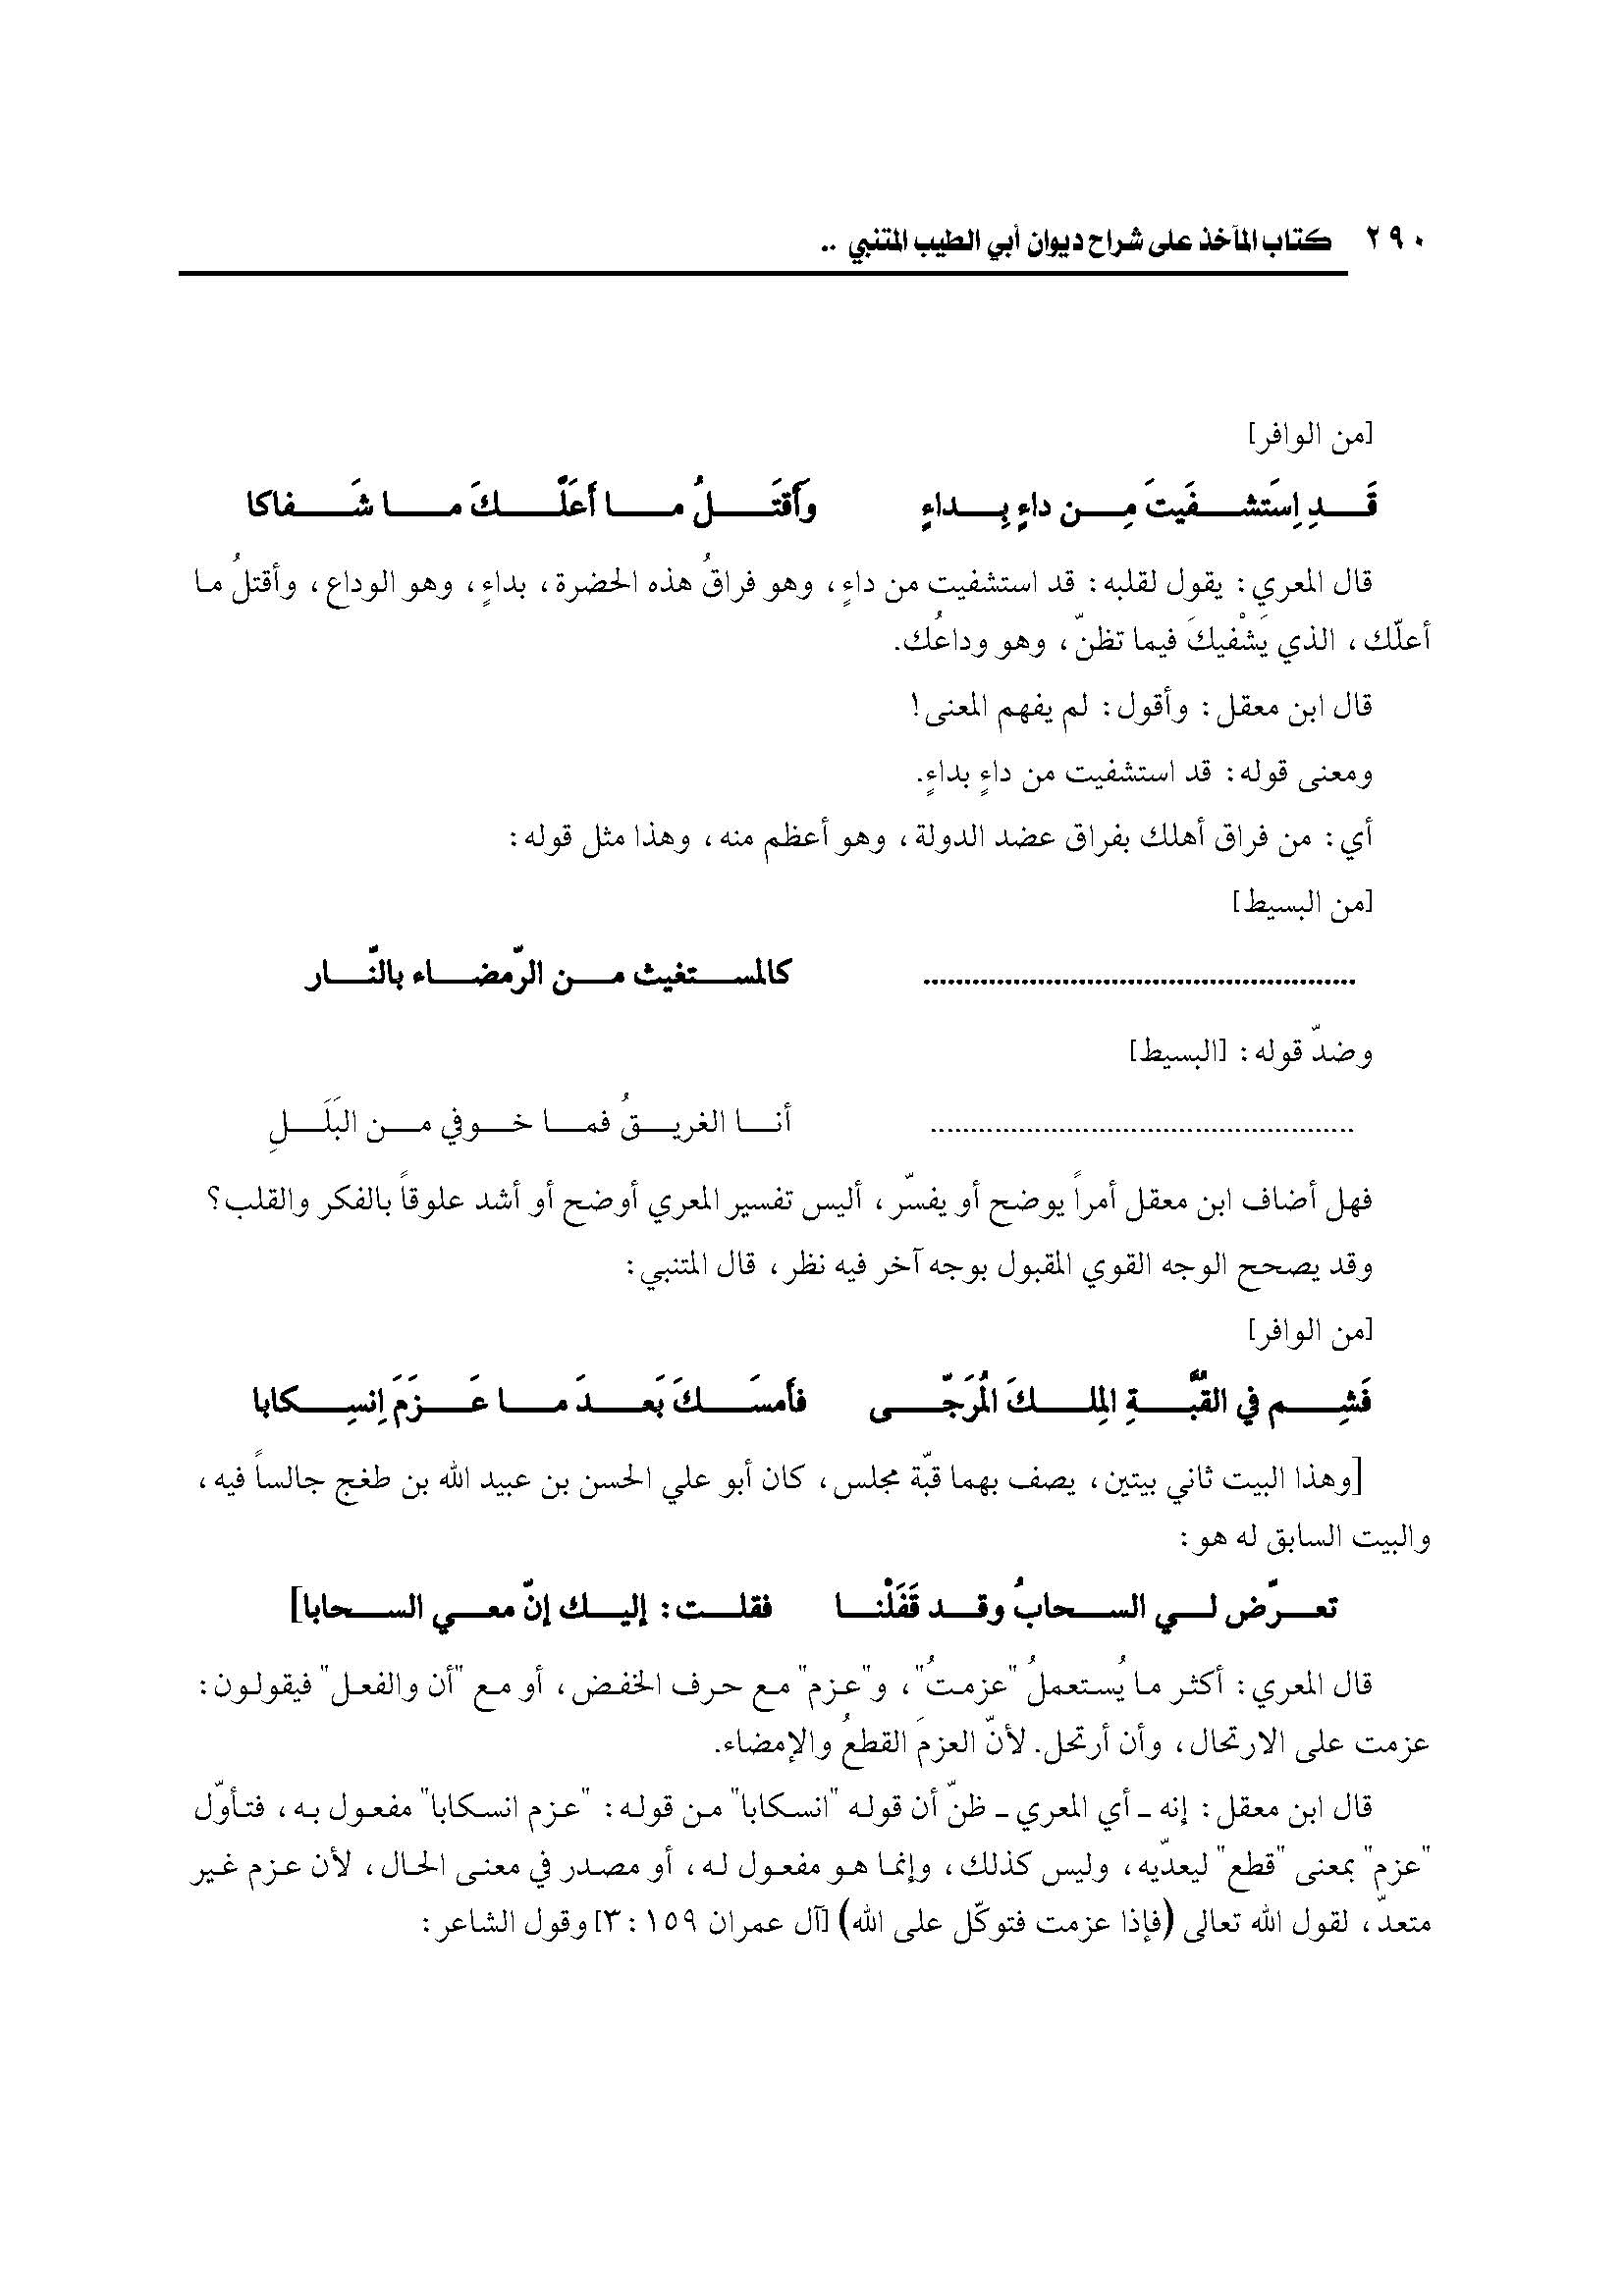 ٢٩٠ كتاب المآخذ على شراح ديوان أبي الطيب المتنبي ..
[من الوافر]
قَدِ اِستَشفَيتَ مِن داءٍ بِداءٍ وَأَقتَلُ ما أَعَلَّكَ ما شَفاكا
قال المعري: يقول لقلبه: قد استشفيت من داءٍ، وهو فراقُ هذه الحضرة، بداءٍ، وهو الوداع، وأقتلُ ما
أعلّك، الذي يَشْفيكَ فيما تظنّ، وهو وداعُك.
قال ابن معقل: وأقول: لم يفهم المعنى!
ومعنى قوله: قد استشفيت من داءٍ بداءٍ.
أي: من فراق أهلك بفراق عضد الدولة، وهو أعظم منه، وهذا مثل قوله:
[من البسيط]
.................................................... كالمستغيث من الرّمضاء بالنّار
وضدّ قوله: [البسيط]
.................................................... أنا الغريقُ فما خوفي من البَلَلِ
فهل أضاف ابن معقل أمراً يوضح أو يفسّر، أليس تفسير المعري أوضح أو أشد علوقاً بالفكر والقلب؟
وقد يصحح الوجه القوي المقبول بوجه آخر فيه نظر، قال المتنبي:
[من الوافر]
فَشِم في القُبَّةِ المِلكَ المُرَجّى فأَمسَكَ بَعدَ ما عَزَمَ اِنسِكابا
[وهذا البيت ثاني بيتين، يصف بهما قبّة مجلس، كان أبو علي الحسن بن عبيد الله بن طغج جالساً فيه،
والبيت السابق له هو:
تعرّض لي السحابُ وقد قَفَلْنا فقلت: إليك إنّ معي السحابا]
قال المعري: أكثر ما يُستعملُ "عزمتُ"، و"عزم" مع حرف الخفض، أو مع "أن والفعل" فيقولون:
عزمت على الارتحال، وأن أرتحل. لأنّ العزمَ القطعُ والإمضاء.
قال ابن معقل: إنه ـ أي المعري ـ ظنّ أن قوله "انسكابا" من قوله: "عزم انسكابا" مفعول به، فتأوّل
"عزم" بمعنى "قطع" ليعدّيه، وليس كذلك، وإنما هو مفعول له، أو مصدر في معنى الحال، لأن عزم غير
متعدّ، لقول الله تعالى (فإذا عزمت فتوكّل على الله) [آل عمران ١٥٩ :٣] وقول الشاعر: